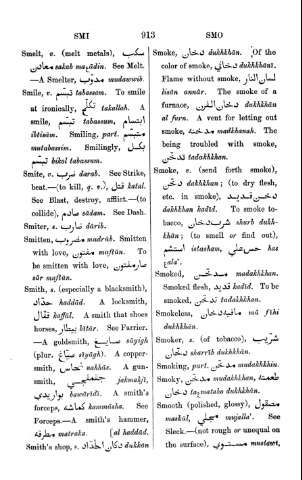 SMI 913 SMO
Smelt, v. (melt metals), سكب
sakab معادن maʿādin. See Melt.
—A Smelter, مدوّب mudawwib.
Smile, v. تبسّم tabassam. To smile
at ironically, تكلّح takallaḥ. A
smile, تبسّم tabassum, ابتسام
ibtisām. Smiling, part. متبسّم
mutabassim. Smilingly, بكل
تبسّم bikol tabassum.
Smite, v. ضرب ḍarab. See Strike,
beat.—(to kill, q. v.), قتل ḳatal.
See Blast, destroy, afflict.—(to
collide), صادم ṣādam. See Dash.
Smiter, s. ضارب ḍārib.
Smitten, مضروب maḍrūb. Smitten
with love, مفتون maftūn. To
be smitten with love, صار مفتون
ṣār maftūn.
Smith, s. (especially a blacksmith),
حدّاد ḥaddād. A locksmith,
قفّال ḳaffāl. A smith that shoes
horses, بيطار bīṭār. See Farrier.
—A goldsmith, صايغ ṣāyigh
(plur. صيّاغ ṣiyāgh). A copper-
smith, نحّاس naḥḥās. A gun-
smith, جقمقجي jaḳmaḳjī,
بواريدي bawārīdī. A smith's
forceps, كماشه kammāsha. See
Forceps.—A smith's hammer,
مطرقه maṭraḳa. [al ḥaddād.
Smith's shop, s. دكان الحدّاد dukkān
Smoke, دخان dukhkhān. Of the
color of smoke, دخاني dukhkhānī.
Flame without smoke, لسان النار
lisān annār. The smoke of a
furnace, دخان الفرن dukhkhān
al furn. A vent for letting out
smoke, مدخنه madkhanah. The
being troubled with smoke,
تدخّن tadakhkhan.
Smoke, v. (send forth smoke),
دخّن dakhkhan; (to dry flesh,
etc. in smoke), دخن قديد
dakhkhan ḳadīd. To smoke to-
bacco, شرب دخان sharb dukh-
khān; (to smell or find out),
استشم istasham, حس على ḥas
ʿala'.
Smoked, مدخّن mudakhkhan.
Smoked flesh, قديد ḳadīd. To be
smoked, تدخّن tadakhkhan.
Smokeless, ما فيه دخان mā fīhi
dukhkhān.
Smoker, s. (of tobacco), شرّيب
دخان sharrīb dukhkhān.
Smoking, part. مدخن mudakhkhin.
Smoky, مدخن mudakhkhan, طعمته
دخان ṭaʿmataho dukhkhān.
Smooth (polished, glossy), مصقول
maṣḳūl, مجلي mujalla'. See
Sleek.—(not rough or unequal on
the surface), مستوي mustawī,